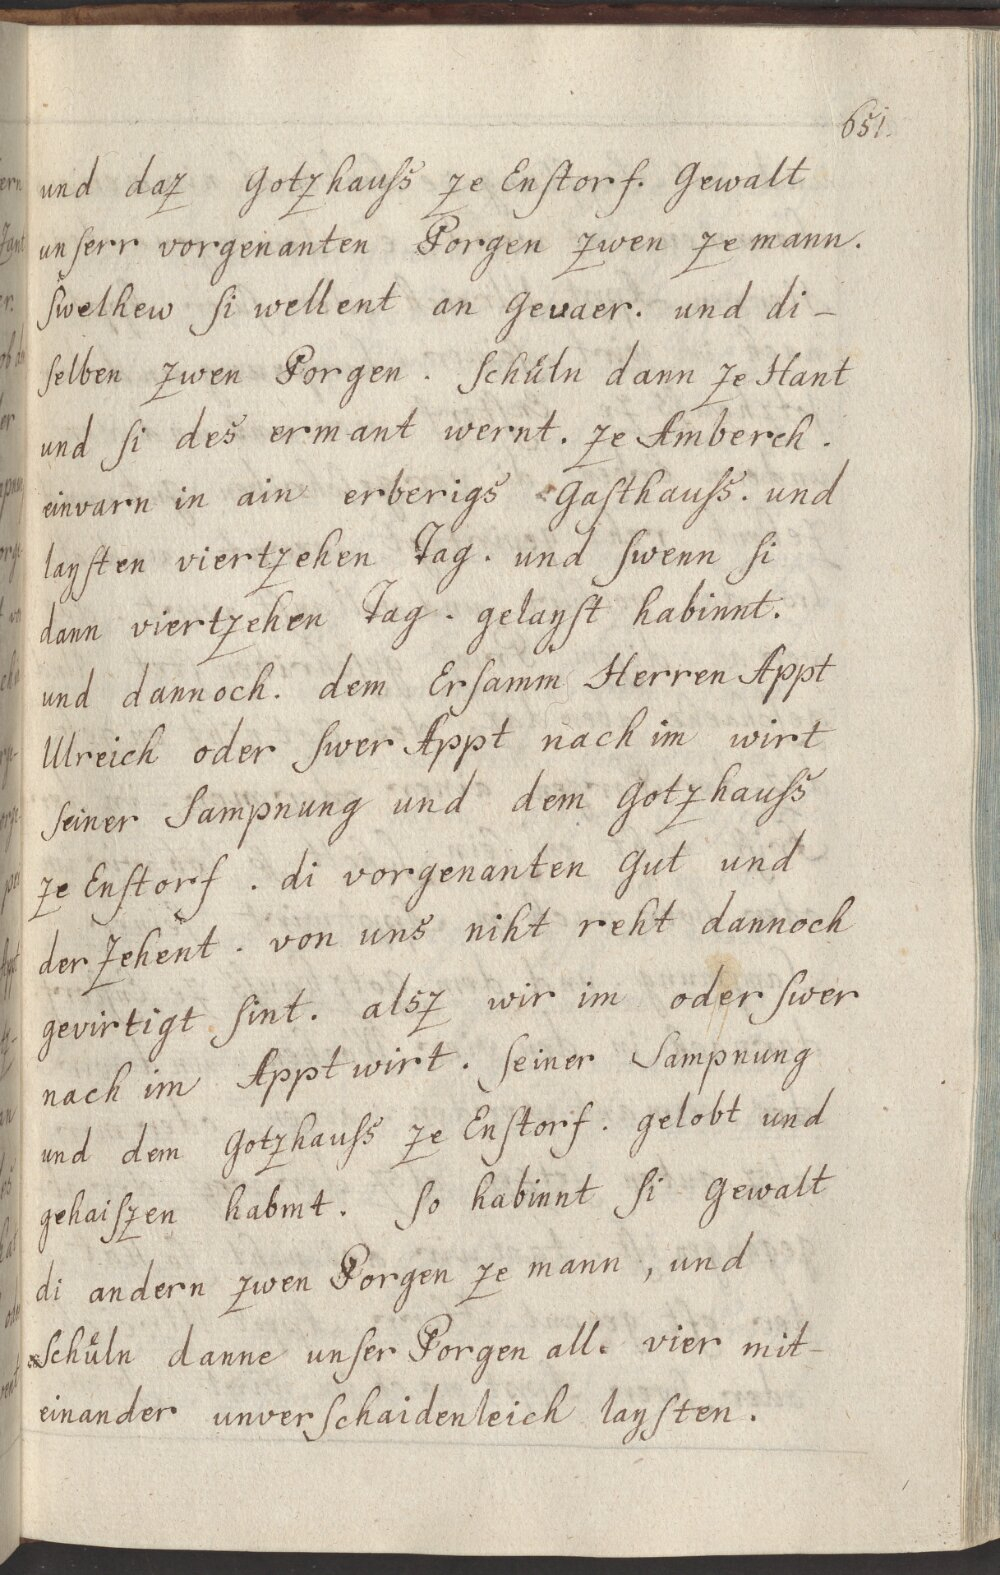 651.
und daz Gotzhauſs ze Enſtorf. Gewalt
unſerr vorgenanten Porgen zwen ze mann.
Swelhew ſi wellent an Gevaer. und di-
ſelben zwen Porgen. Schuͤln dann ze Hant
und ſi des ermant wernt. ze Amberch.
einvarn in ain erberigs Gaſthauſs. und
layſten viertzehen Tag. und ſwenn ſi
dann viertzehen Tag. gelayſt habinnt.
und dannoch. dem Erſamm Herren Appt
Ulreich oder ſwer Appt nach im wirt
ſeiner Sampnung und dem Gotzhauſs
ze Enſtorf. di vorgenanten Gut und
der Zehent. von uns niht reht dannoch
gevirtigt ſint. alsz wir im oder ſwer
nach im Appt wirt. ſeiner Sampnung
und dem Gotzhauſs ze Enſtorf. gelobt und
gehaiſzen habmt. ſo habinnt ſi Gewalt
di andern zwen Porgen ze mann, und
Schuͤln danne unſer Porgen all. vier mit-
einander unverſchaidenleich layſten.